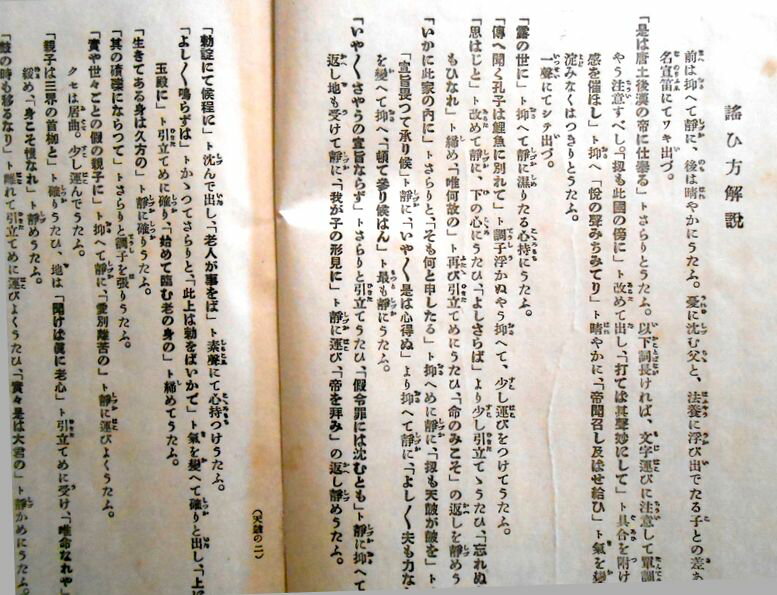 謠ひ方解說
前は抑へて靜に、後は晴やかにうたふ。憂に沈む父と、法養に浮び出でたる子との差あ
名宣笛にてワキ出づ。
「是は唐土後漢の帝に仕奉る」トさらりとうたふ。以下詞長ければ、文字運びに注意して單調
やう注意すべし。「扨も此國の傍に」ト改めて出し、「打てば其聲妙にして」ト具合を附け
感を催ほし」ト抑へ「悅の聲みちみてり」ト晴やかに、「帝聞召し及ばせ給ひ」ト氣を變
淀みなくはつきりとうたふ。
一聲にてシテ出づ。
「露の世に」ト抑へて靜に濕りたる心持にうたふ。
「傳へ聞く孔子は鯉魚に別れて」ト調子浮かぬやう抑へて、少し運びをつけてうたふ。
「思はじと」ト改めて靜に、下の心にうたひ、「よしさらば」より少し引立てゝうたひ、「忘れぬ
もひなれ」ト締め、「唯何故の」ト再び引立てめにうたひ、「命のみこそ」の返しを靜めう
「いかに此家の內に」トさらりと、「そも何と申したる」ト抑へめに靜に、「扨も天鼓が鼓を」ト
「宣旨畏つて承り候」ト靜に、「いや〱是は心得ぬ」より抑へて靜に、「よし〱夫も力な
を變へて抑へ、「頓て參り候はん」ト最も靜にうたふ。
「いや〱さやうの宣旨ならず」トさらりと引立てうたひ、「假令罪には沈むとも」ト靜に抑へて
返し地も受けて靜に、「我が子の形見に」ト靜に運び、「帝を拜み」の返し靜めうたふ。
（天鼓の二）
「勅諚にて候程に」ト沈んで出し、「老人が事をば」ト素聲にて心持つけうたふ。
「よし〱鳴らずは」トかゝつてさらりと、「此上は勅をばいかで」ト氣を變へて確りと出し、「上に
玉殿に」ト引立てめに確り、「始めて臨む老の身の」ト締めてうたふ。
「生きてある身は久方の」ト靜に確りうたふ。
「其の磧礫にならつて」トさらりと調子を張りうたふ。
「實や世々ごとの假の親子に」ト抑へて靜に、「愛別離苦の」ト靜に運びよくうたふ。
クセは居曲。少し運んでうたふ。
「親子は三界の首枷と」ト確りうたひ、地は「聞けば眞に老心」ト引立てめに受け、「唯命なれや」
綏め、「身こそ恨なれ」ト靜めうたふ。
「鼓の時も移るなり」ト離れて引立てめに運びよくうたひ、「實々是は大君の」ト靜かめにうたふ。